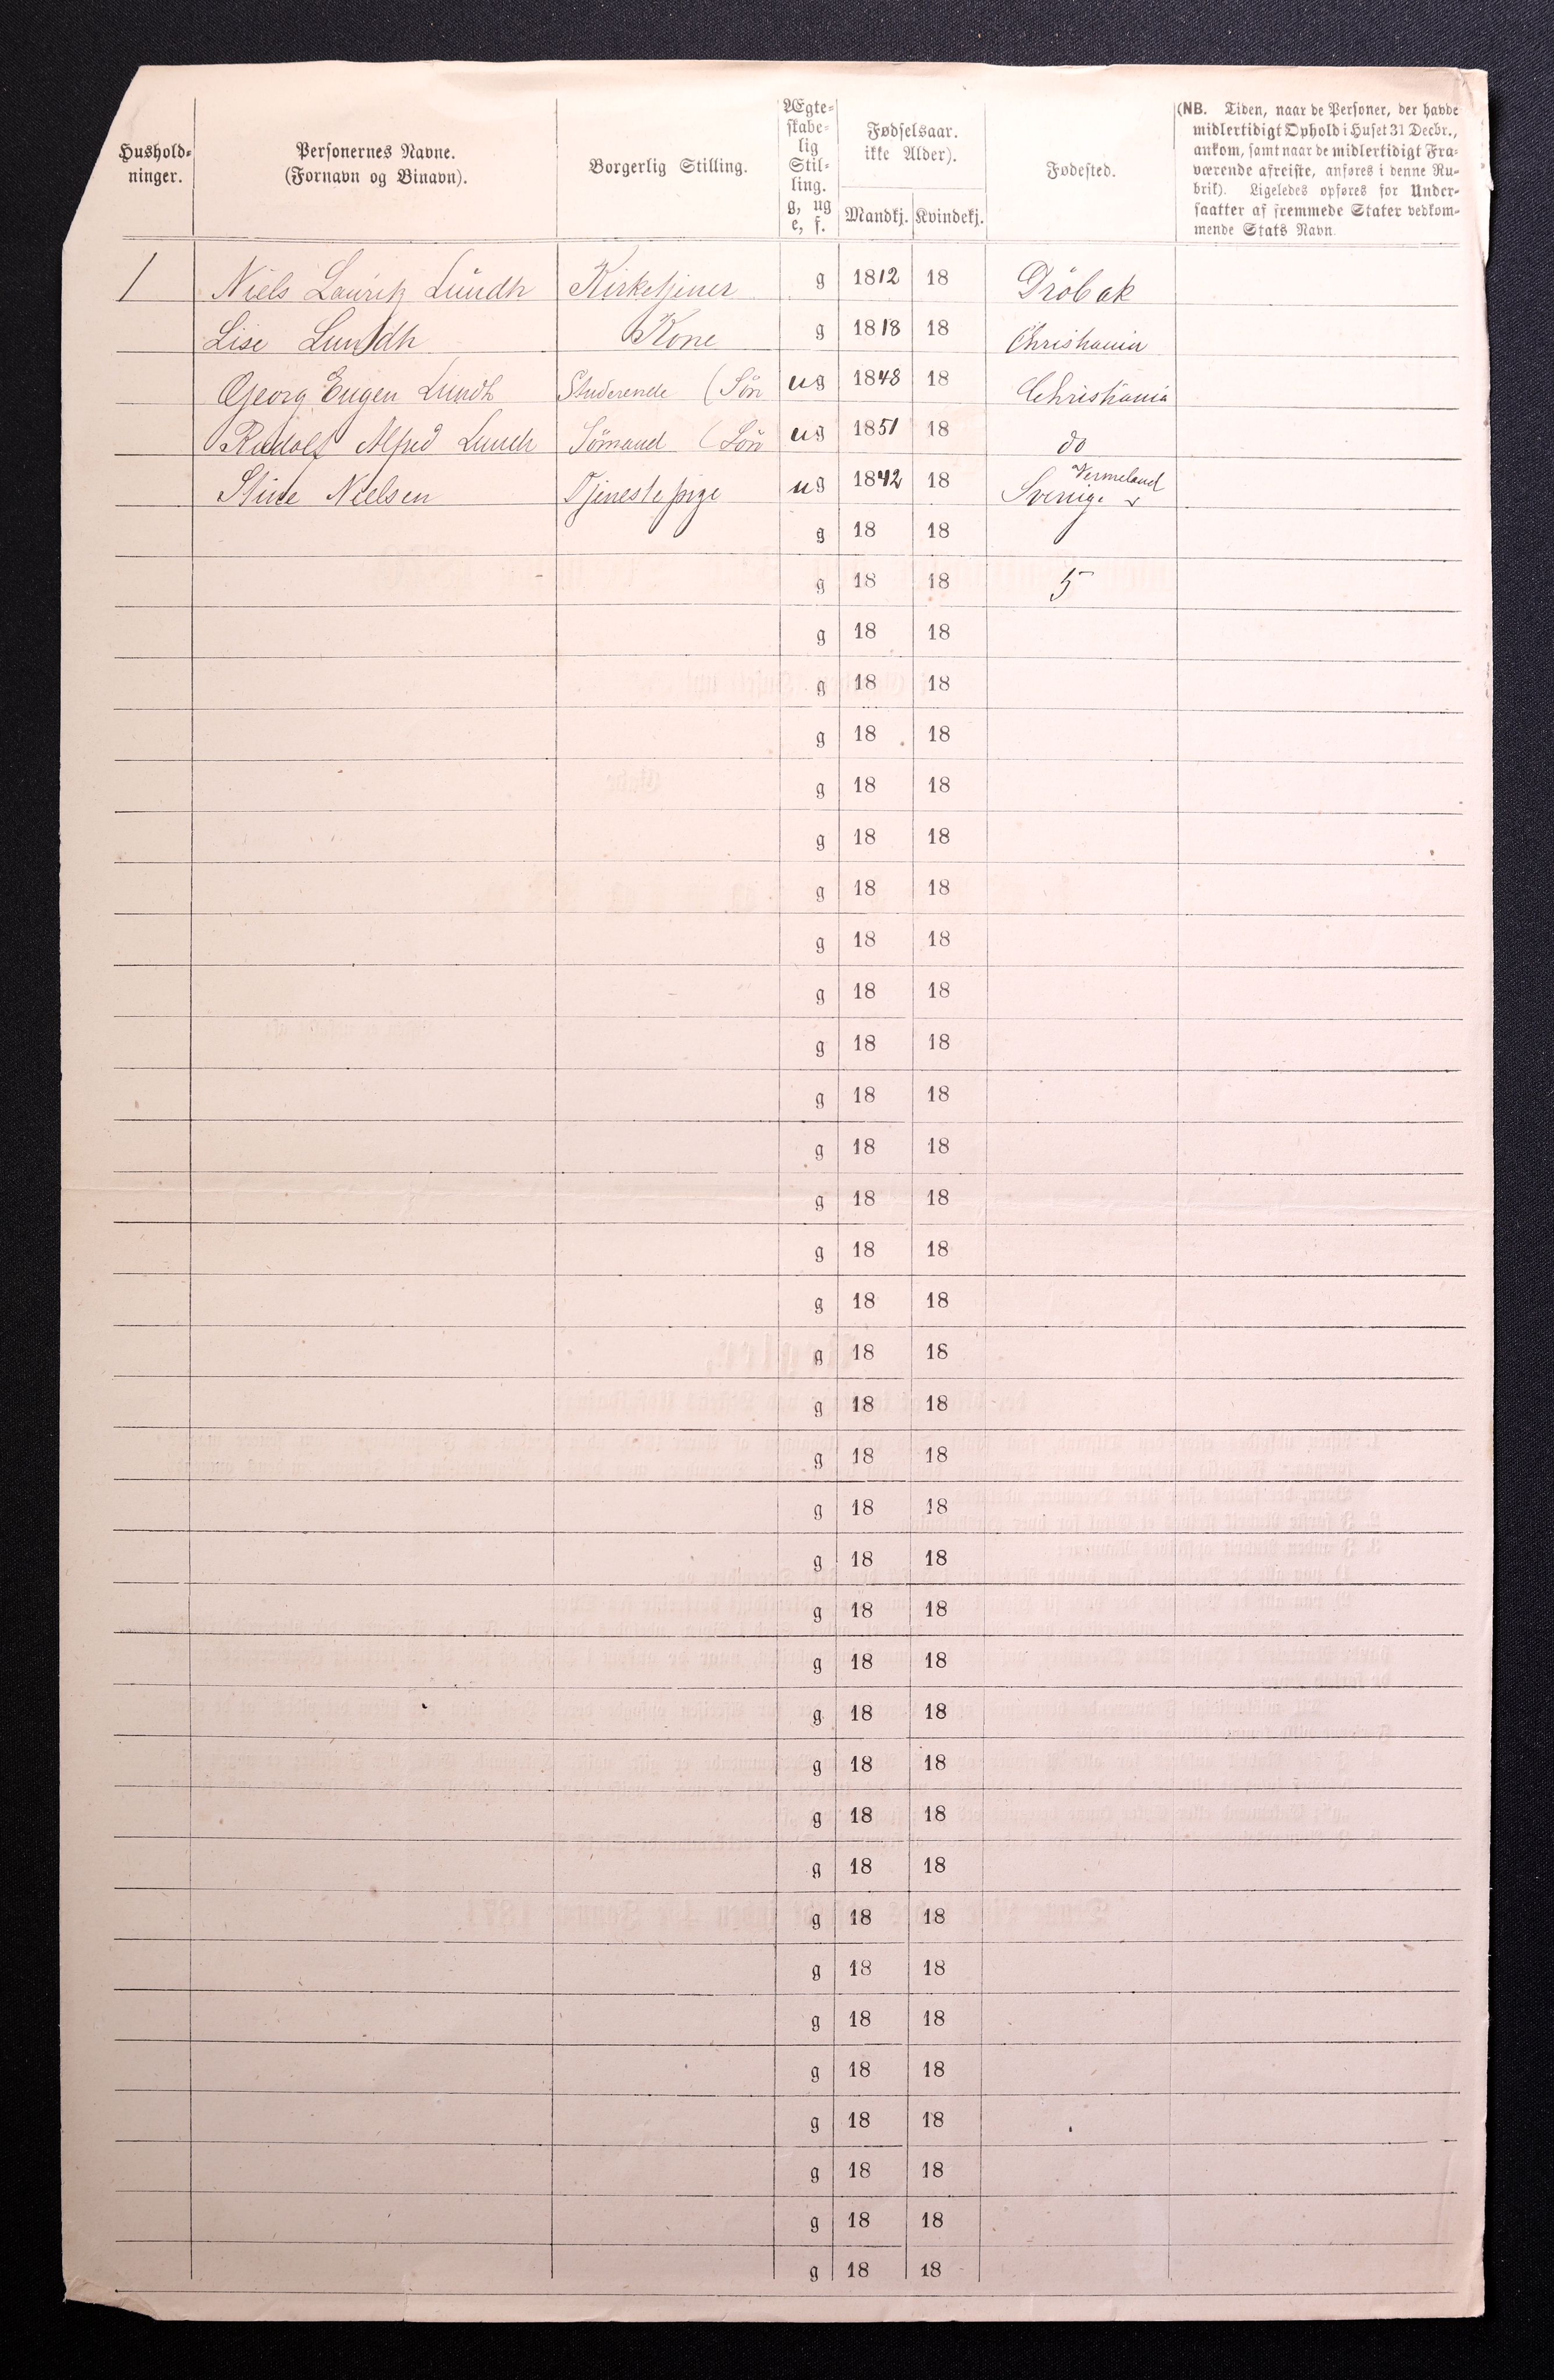 Hushold-
ninger.
Personernes Navne.
(Fornavn og Binavn).
Borgerlig Stilling.
Ægte-
skabe-
lig
Stil-
ling.
g, ug
e, f.
Fødselsaar.
ikke Alder).
Mandkj. Kvindekj.
Fødested.
(NB. Tiden, naar de Personer, der havde
midlertidigt Ophold i Huset 31 Decbr.,
ankom, samt naar de midlertidigt Fra-
værende afreiste, anføres i denne Ru-
brik). Ligeledes opføres for Under-
saatter af fremmede Stater vedkom-
mende Stats Navn.
1 Niels Lauritz Lundh Kirketjener g 1812 18 Dröbak
Lise Lundh Kone g 1818 18 Christiania
Georg Eugen Lundh Studerende (Sön ug 1848 18 Christiania
Rudolf Alfred Lundh Sömand (Sön ug 1851 18 do
Stine Nielsen Tjenestepige ug 1842 18 Vermeland
Sverige
g 18 18
g 18 18 5
g 18 18
g 18 18
g 18 18
g 18 18
g 18 18
g 18 18
g 18 18
g 18 18
g 18 18
g 18 18
g 18 18
g 18 18
g 18 18
g 18 18
g 18 18
g 18 18
g 18 18
g 18 18
g 18 18
g 18 18
g 18 18
g 18 18
g 18 18
g 18 18
g 18 18
g 18 18
g 18 18
g 18 18
g 18 18
g 18 18
g 18 18
g 18 18
g 18 18